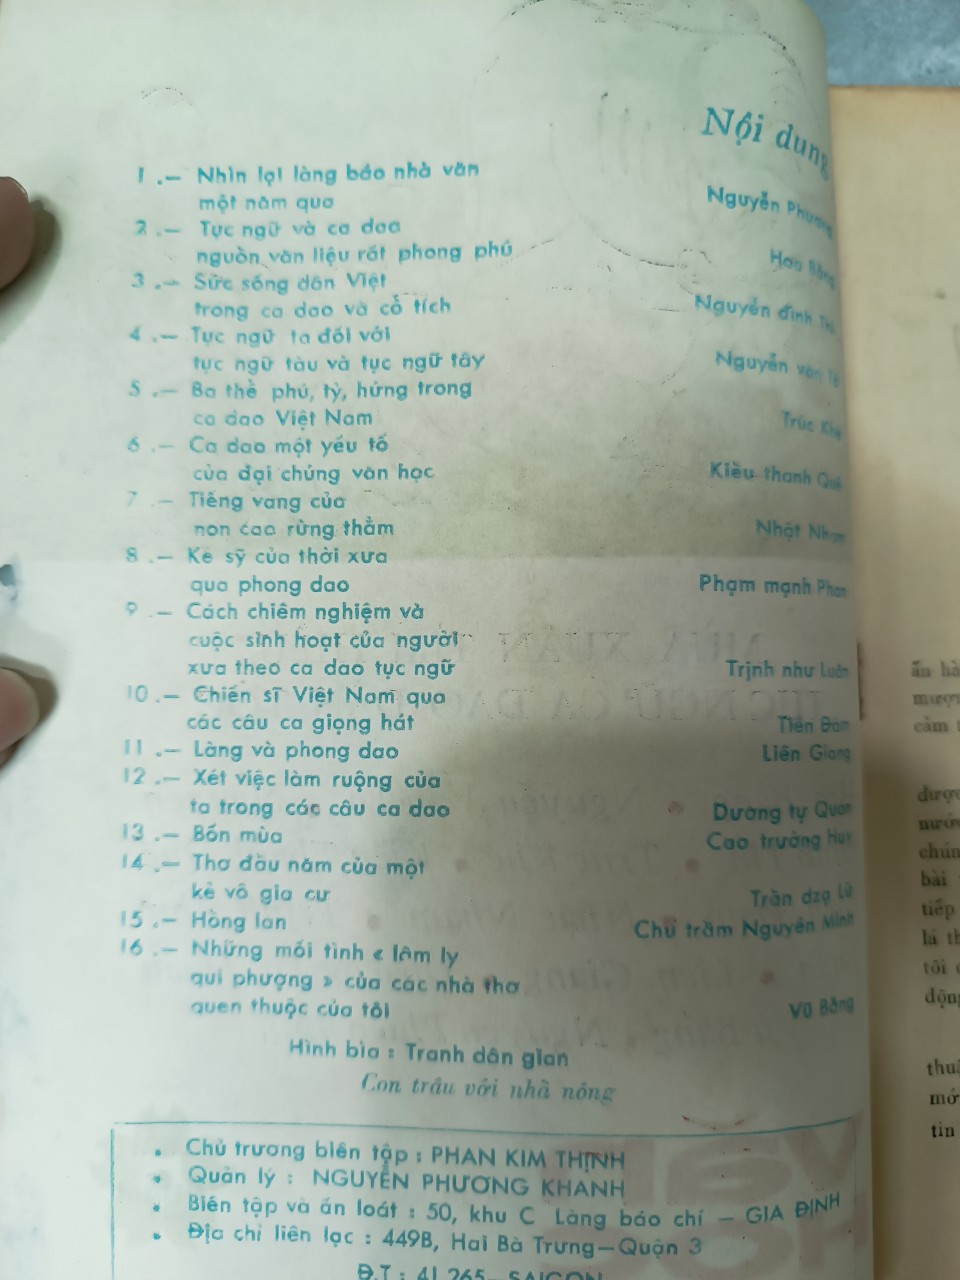 Nội dung
1.— Nhìn lại làng báo nhà văn
một năm qua
Nguyễn Phương
2.— Tục ngữ và ca dao
nguồn văn liệu rất phong phú
Hoa Bằng
3.— Sức sống dân Việt
trong ca dao và cổ tích
Nguyễn đình Thi
4.— Tục ngữ ta đối với
tục ngữ tàu và tục ngữ tây
Nguyễn văn Tố
5.— Ba thể phú, tỷ, hứng trong
ca dao Việt Nam
Trúc Khê
6.— Ca dao một yếu tố
của đại chúng văn học
Kiều thanh Quế
7.— Tiếng vang của
non cao rừng thẳm
Nhật Nham
8.— Kẻ sỹ của thời xưa
qua phong dao
Phạm mạnh Phan
9.— Cách chiêm nghiệm và
cuộc sinh hoạt của người
xưa theo ca dao tục ngữ
Trịnh như Luân
10.— Chiến sĩ Việt Nam qua
các câu ca giọng hát
Tiên Đàm
11.— Làng và phong dao
Liên Giang
12.— Xét việc làm ruộng của
ta trong các câu ca dao
Dương tự Quán
13.— Bốn mùa
Cao trường Huy
14.— Thơ đầu năm của một
kẻ vô gia cư
Trần dzạ Lữ
15.— Hồng lan
Chu trầm Nguyên Minh
16.— Những mối tình « lâm ly
qui phượng » của các nhà thơ
quen thuộc của tôi
Vũ Bằng
Hình bìa : Tranh dân gian
Con trâu với nhà nông
• Chủ trương biên tập : PHAN KIM THỊNH
• Quản lý : NGUYỄN PHƯƠNG KHANH
• Biên tập và ấn loát : 50, khu C Làng báo chí — GIA ĐỊNH
• Địa chỉ liên lạc : 449B, Hai Bà Trưng—Quận 3
Đ.T : 41.265— SAIGON
ấn hà
mượn
cảm t
được
nước
chún
bài
tiếp
là th
tôi
động
thuậ
mới
tin